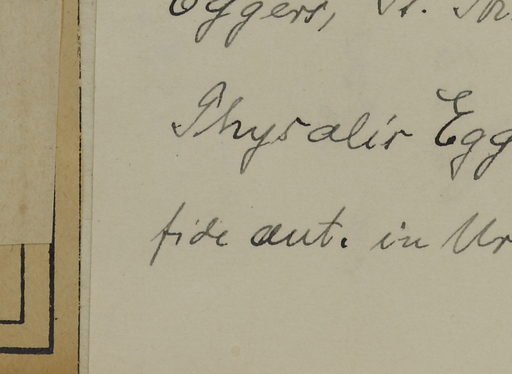 Eggers, St. Th
Physalis Egg
fide aut. in Ur